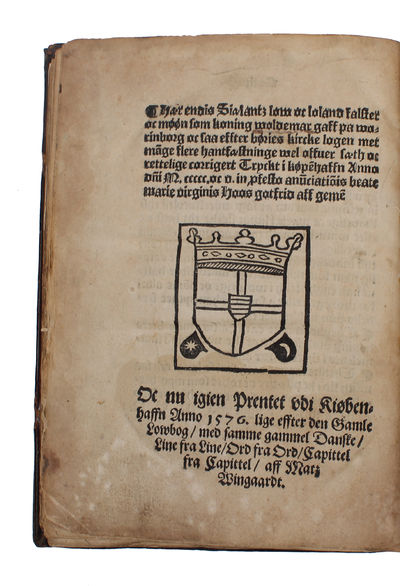 ¶ Her endis Sialantz low oc loland falster
oc møøn som koning woldemar gaff pa wo-
rinborg oc saa effter høries kircke logen met
mãge flere hantfæstninge wel offuer sæth oc
rettelige corrigert Tryckt i køpẽhaffn Anno
dñi M. ccccc. oc v. in ꝓfesto anũciatiõis beate
marie virginis Hoos gotfrid aff gemẽ
Oc nu igien Prentet vdi Kiøben-
haffn Anno 1576. lige effter den Gamle
Lowbog / med samme gammel Danske /
Line fra Line / Ord fra Ord / Capittel
fra Capittel / aff Matz
Wingaardt.